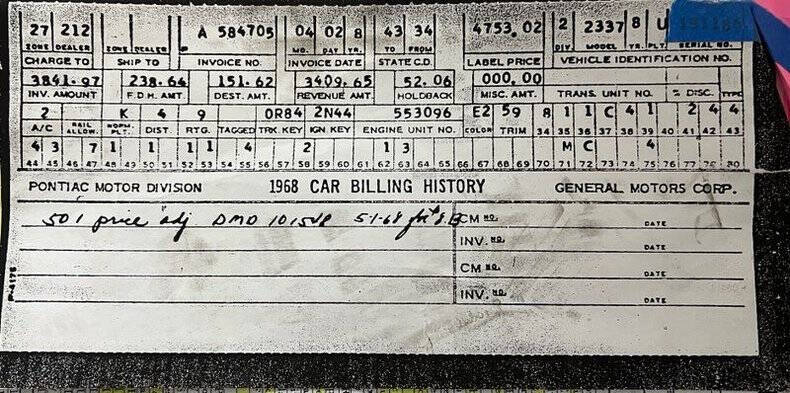 27 212 A 584705 04 02 8 43 34 4753.02 2 2337 8 U
ZONE DEALER ZONE DEALER MO. DAY YR. TO FROM DIV. MODEL YR. PLT. SERIAL NO.
CHARGE TO SHIP TO INVOICE NO. INVOICE DATE STATE C.D. LABEL PRICE VEHICLE IDENTIFICATION NO.
3841.97 238.64 151.62 3409.65 52.06 000.00
INV. AMOUNT F.D.H. AMT. DEST. AMT. REVENUE AMT. HOLDBACK MISC. AMT. TRANS. UNIT NO. % DISC. TYPE
2 K 4 9 0R84 2N44 553096 E2 59 8 1 1 C 4 1 2 4 4
A/C RAIL ALLOW. NORM. PLT. DIST. RTG. TAGGED TRK KEY IGN KEY ENGINE UNIT NO. COLOR TRIM 34 35 36 37 38 39 40 41 42 43
4 3 7 1 1 1 1 4 2 1 3 M C 4
44 45 46 47 48 49 50 51 52 53 54 55 56 57 58 59 60 61 62 63 64 65 66 67 68 69 70 71 72 73 74 75 76 77 78 79 80
PONTIAC MOTOR DIVISION 1968 CAR BILLING HISTORY GENERAL MOTORS CORP.
501 price adj DMD 5-1-68 CM NO. DATE
INV. NO. DATE
CM NO. DATE
INV. NO. DATE
P-4175